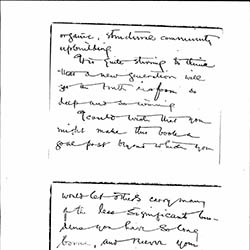 organic, structural community
upbuilding
It is quite strong to think
that a new generation will
go so
deep and so
I could wish that you
might make this book a
goal post beyond which you
would let others carry many
of the less significant bur-
dens you have so long
borne, and never you